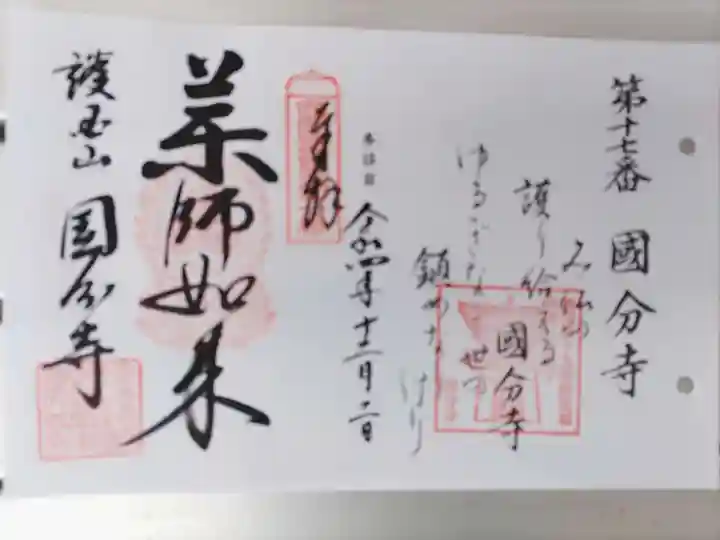 第十七番 國分寺
み仏の
護り給える
國分寺
ゆるぎなき世の
鎮めなりけり
参拝日 令和四年十二月二日
奉拝
薬師如来
護国山 国分寺